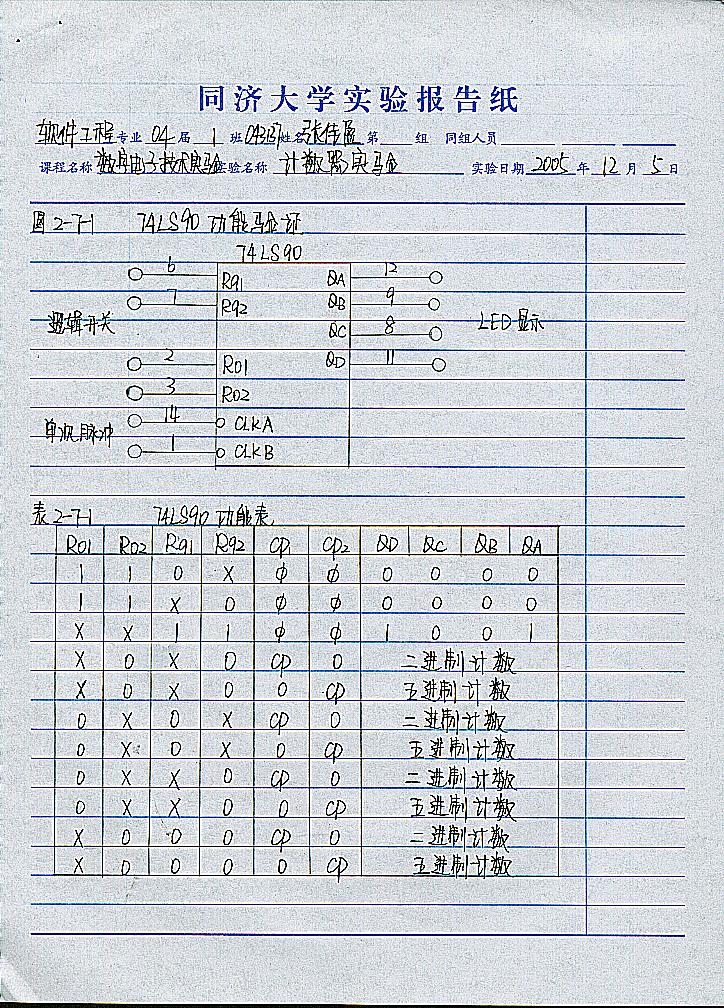 同济大学实验报告纸
软件工程专业 04届 1班 043137 姓名 张佳盈 第 组 同组人员
课程名称 数字电子技术实验 实验名称 计数器实验 实验日期 2005 年 12 月 5 日
图2-7-1 74LS90 功能验证
74LS90
6 R91 QA 12
7 R92 QB 9
逻辑开关 QC 8 LED显示
2 R01 QD 11
3 R02
单次脉冲 14 CLKA
1 CLKB
表2-7-1 74LS90 功能表
R01 R02 R91 R92 CP1 CP2 QD QC QB QA
1 1 0 X ϕ ϕ 0 0 0 0
1 1 X 0 ϕ ϕ 0 0 0 0
X X 1 1 ϕ ϕ 1 0 0 1
X 0 X 0 CP 0 二进制计数
X 0 X 0 0 CP 五进制计数
0 X 0 X CP 0 二进制计数
0 X 0 X 0 CP 五进制计数
0 X X 0 CP 0 二进制计数
0 X X 0 0 CP 五进制计数
X 0 0 0 CP 0 二进制计数
X 0 0 0 0 CP 五进制计数